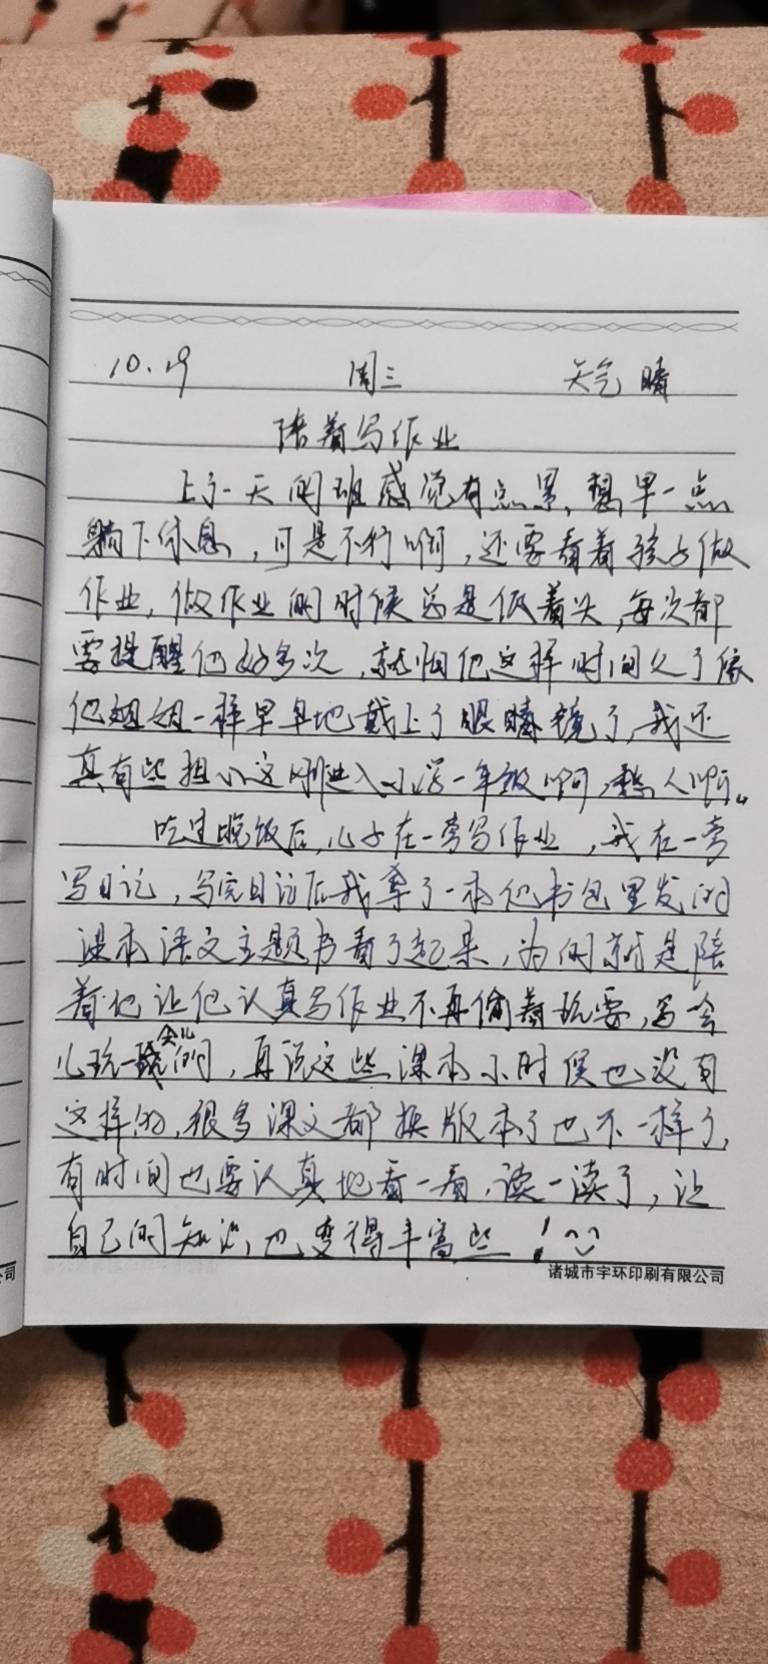 10.19 周三 天气 晴
陪着写作业
上了一天的班感觉有点累,想早一点
躺下休息,可是不行啊,还要看着孩子做
作业,做作业的时候总是低着头,每次都
要提醒他好多次,就怕他这样时间久了像
他姐姐一样早早地戴上了眼睛镜了,我还
真有些担心这刚进入小学一年级啊,愁人啊。
吃过晚饭后,儿子在一旁写作业,我在一旁
写日记,写完日记后我拿了一本他书包里发的
课本语文主题书看了起来,为的就是陪
着他让他认真写作业不再偷着玩耍,写会
儿玩一会儿的,再说这些课本小时候也没有
这样的,很多课文都换版本了也不一样了,
有时间也要认真地看一看,读一读了,让
自己的知识,也变得丰富些!
诸城市宇环印刷有限公司
司